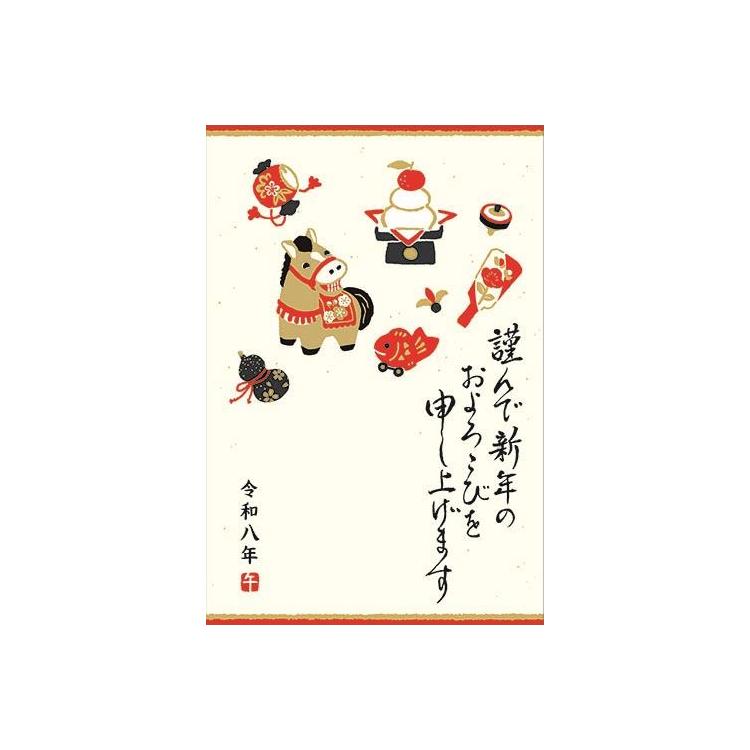 謹んで新年の
およろこびを
申し上げます
令和八年
午